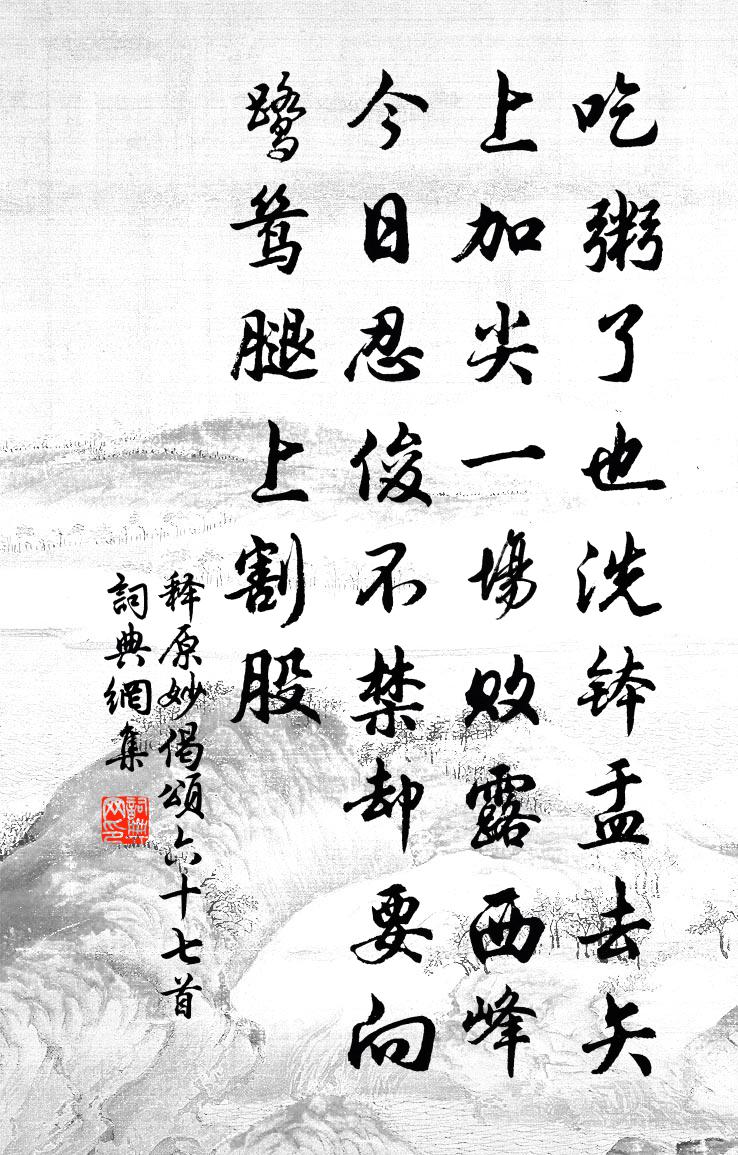 吃粥了也洗钵盂去矢
上加尖一場败露西峰
今日忍俊不禁却要向
鷺鸶腿上割股
释原妙偈頌六十七首
詞典網集
詞典网印